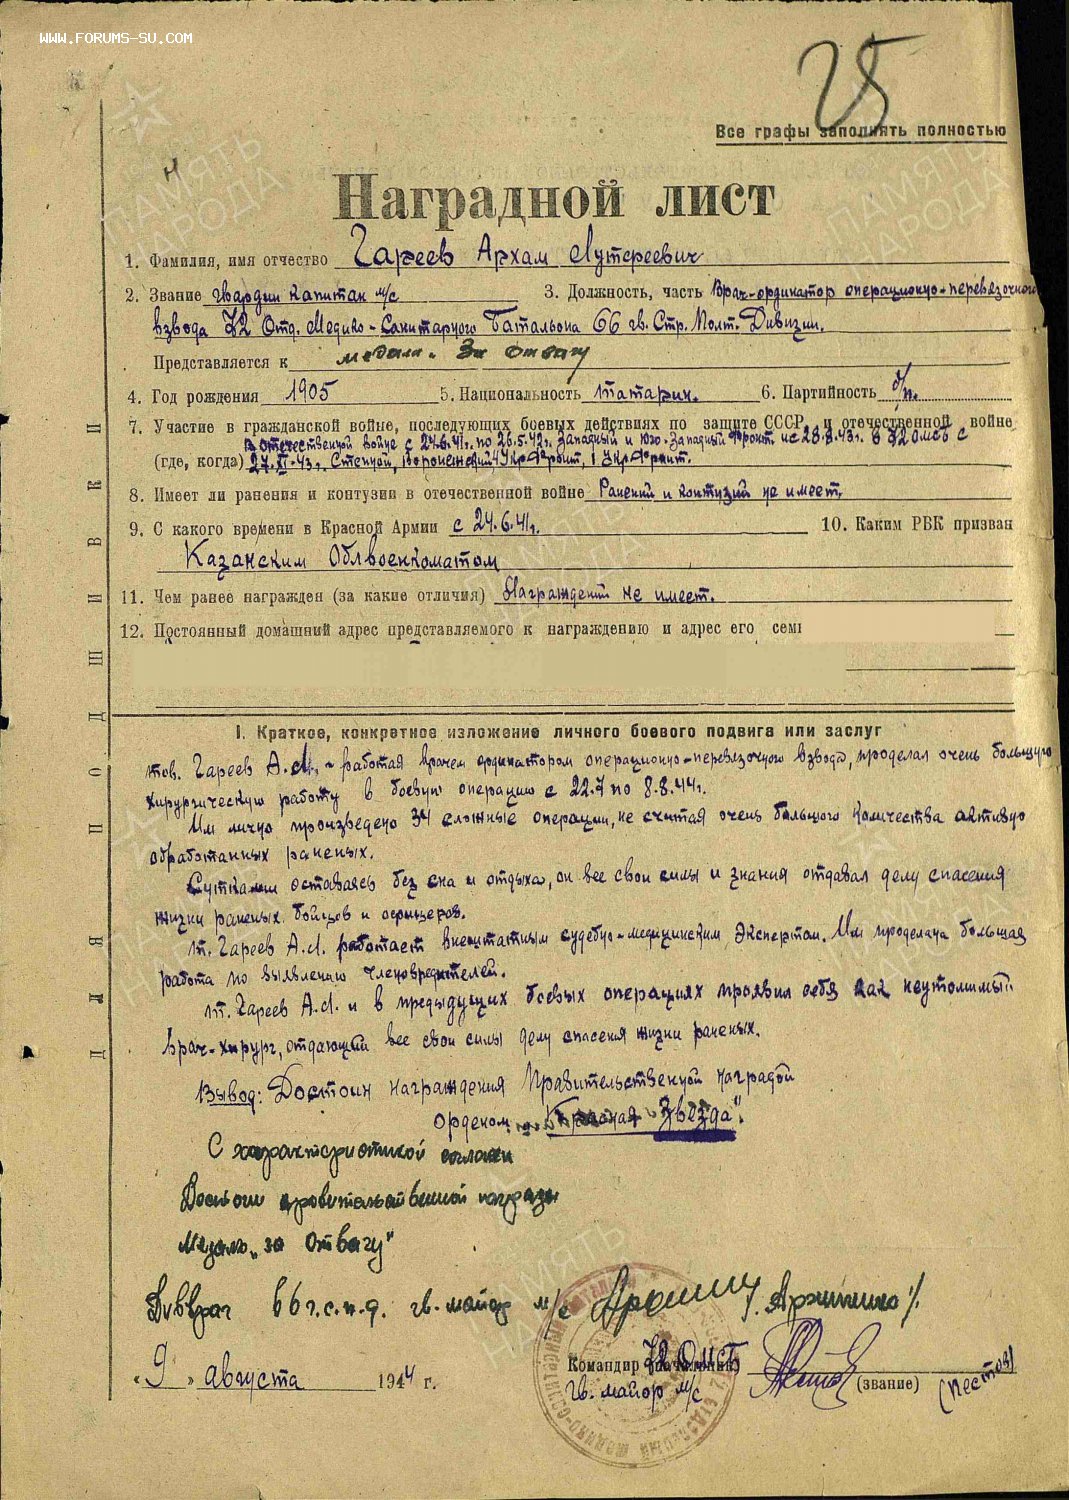 WWW.FORUMS-SU.COM
25
Все графы заполнять полностью
Наградной лист
1. Фамилия, имя отчество Гареев Архам Лутфеевич
2. Звание гвардии капитан м/с 3. Должность, часть Врач-ординатор операционно-перевязочного
взвода 72 Отд. Медико-Санитарного Батальона 66 гв. Стр. Полт. Дивизии.
Представляется к медали "За отвагу
4. Год рождения 1905 5. Национальность татарин. 6. Партийность б/п.
7. Участие в гражданской войне, последующих боевых действиях по защите СССР и отечественной войне
В Отечественной войне с 24.6.41г. по 26.5.42г. Западный и Юго-Западный фронт и с 28.8.43г. в 72 ОМСБ с
(где, когда) 27.XI.43г. Степной, Воронежский, 1 Укр Фронт.
8. Имеет ли ранения и контузии в отечественной войне Ранений и контузий не имеет.
9. С какого времени в Красной Армии с 24.6.41г. 10. Каким РВК призван
Казанским Облвоенкоматом
11. Чем ранее награжден (за какие отличия) Награждений не имеет.
12. Постоянный домашний адрес представляемого к награждению и адрес его семь
ДЛЯ ПОДШИВКИ
I. Краткое, конкретное изложение личного боевого подвига или заслуг
тов. Гареев А.Л. - работая врачем ординатором операционно-перевязочного взвода, проделал очень большую
хирургическую работу в боевую операцию с 22.7 по 8.8.44г.
Им лично произведено 34 сложные операции, не считая очень большого количества активно
обработанных раненых.
Сутками оставаясь без сна и отдыха, он все свои силы и знания отдавал делу спасения
жизни раненых бойцов и офицеров.
т. Гареев А.Л. работает внештатным судебно-медицинским Экспертом. Им проделана большая
работа по выявлению членовредителей.
т. Гареев А.Л. и в предыдущих боевых операциях проявил себя как неутомимый
врач-хирург, отдающий все свои силы делу спасения жизни раненых.
Вывод: Достоин награждения Правительственной наградой
орденом "Красная Звезда".
С характеристикой согласен
Достоин правительственной награды
Медаль "за Отвагу"
Див врач 66 г.с.п.д. гв. майор м/с /Аршинко/.
Командир (начальник) 72 ОМСБ
гв. майор м/с (звание) (Пестов)
"9" августа 1944 г.
ПАМЯТЬ НАРОДА